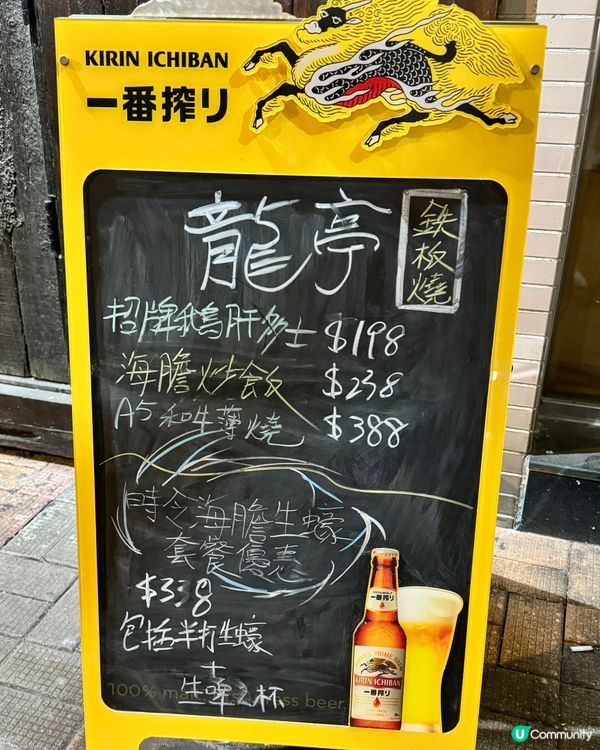 KIRIN ICHIBAN
一番搾り
龍亭
鉄板燒
招牌鵝肝多士 $198
海膽炒飯 $238
A5和牛薄燒 $388
時令海膽生蠔
套餐優惠
$338
包括半打生蠔
+
生啤一杯
100% mal
beer.
KIRIN ICHIBAN
一番搾り
KIRIN ICHIBAN
一番搾り
U Community